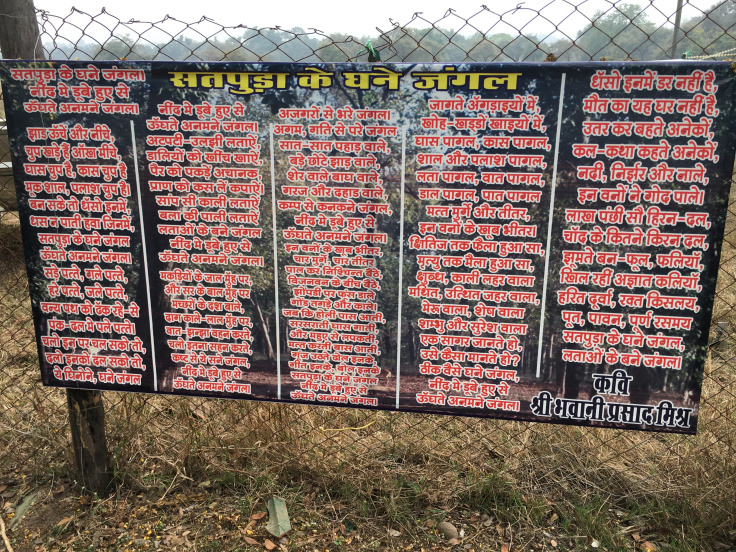 सतपुड़ा के घने जंगल
सतपुड़ा के घने जंगल।
नींद मे डूबे हुए से
ऊँघते अनमने जंगल।
झाड ऊँचे और नीचे,
चुप खड़े हैं आँख मीचे,
घास चुप है, कास चुप है
मूक शाल, पलाश चुप है।
बन सके तो धँसो इनमें,
धस न पाती हवा जिनमें,
सतपुड़ा के घने जंगल
ऊँघते अनमने जंगल।
सड़े पत्ते, गले पत्ते,
हरे पत्ते, जले पत्ते,
वन्य पथ को ढँक रहे-से
पंक-दल मे पले पत्ते।
चलो इन पर चल सको तो,
दलो इनको दल सको तो,
ये घिनोने, घने जंगल
नींद मे डूबे हुए से
ऊँघते अनमने जंगल।
अटपटी-उलझी लताऐं,
डालियों को खींच खाऐं,
पैर को पकड़े अचानक,
प्राण को कस लें कपाऐं।
सांप सी काली लताऐं
बला की पाली लताऐं
लताओं के बने जंगल
नींद मे डूबे हुए से
ऊँघते अनमने जंगल।
मकड़ियों के जाल मुँह पर,
और सर के बाल मुँह पर
मच्छरों के दंश वाले,
दाग काले-लाल मुँह पर,
वात-झन्झा वहन करते,
चलो इतना सहन करते,
कष्ट से ये सने जंगल,
नींद मे डूबे हुए से
ऊँघते अनमने जंगल।
अजगरों से भरे जंगल।
अगम, गति से परे जंगल
सात-सात पहाड़ वाले,
बड़े छोटे झाड़ वाले,
शेर वाले बाघ वाले,
गरज और दहाड़ वाले,
कम्प से कनकने जंगल,
नींद मे डूबे हुए से
ऊँघते अनमने जंगल।
इन वनों के खूब भीतर,
चार मुर्गे, चार तीतर
पाल कर निश्चिन्त बैठे,
विजनवन के बीच बैठे,
झोंपडी पर फूस डाले
गोंड तगड़े और काले।
जब कि होली पास आती,
सरसराती घास गाती,
और महुए से लपकती,
मत्त करती बास आती,
गूंज उठते ढोल इनके,
गीत इनके, बोल इनके
सतपुड़ा के घने जंगल
नींद मे डूबे हुए से
ऊँघते अनमने जंगल।
जागते अँगड़ाइयों में,
खोह-खड्डों खाइयों में,
घास पागल, कास पागल,
शाल और पलाश पागल,
लता पागल, वात पागल,
डाल पागल, पात पागल
मत्त मुर्गे और तीतर,
इन वनों के खूब भीतर।
क्षितिज तक फैला हुआ सा,
मृत्यु तक मैला हुआ सा,
क्षुब्ध, काली लहर वाला
मथित, उत्थित जहर वाला,
मेरू वाला, शेष वाला
शम्भु और सुरेश वाला
एक सागर जानते हो,
उसे कैसा मानते हो?
ठीक वैसे घने जंगल,
नींद मे डूबे हुए से
ऊँघते अनमने जंगल।
धँसो इनमें डर नहीं है,
मौत का यह घर नहीं है,
उतर कर बहते अनेकों,
कल-कथा कहते अनेकों,
नदी, निर्झर और नाले,
इन वनों ने गोद पाले।
लाखा पंछी सौ हिरन-दल,
चाँद के कितने किरन दल,
झूमते बन-फूल, फलियाँ,
खिल रहीं अज्ञात कलियाँ,
हरित दूर्वा, रक्त किसलय,
पूत, पावन, पूर्ण रसमय
सतपुड़ा के घने जंगल।
लताओं के बने जंगल।
कवि
श्री भवानी प्रसाद मिश्र